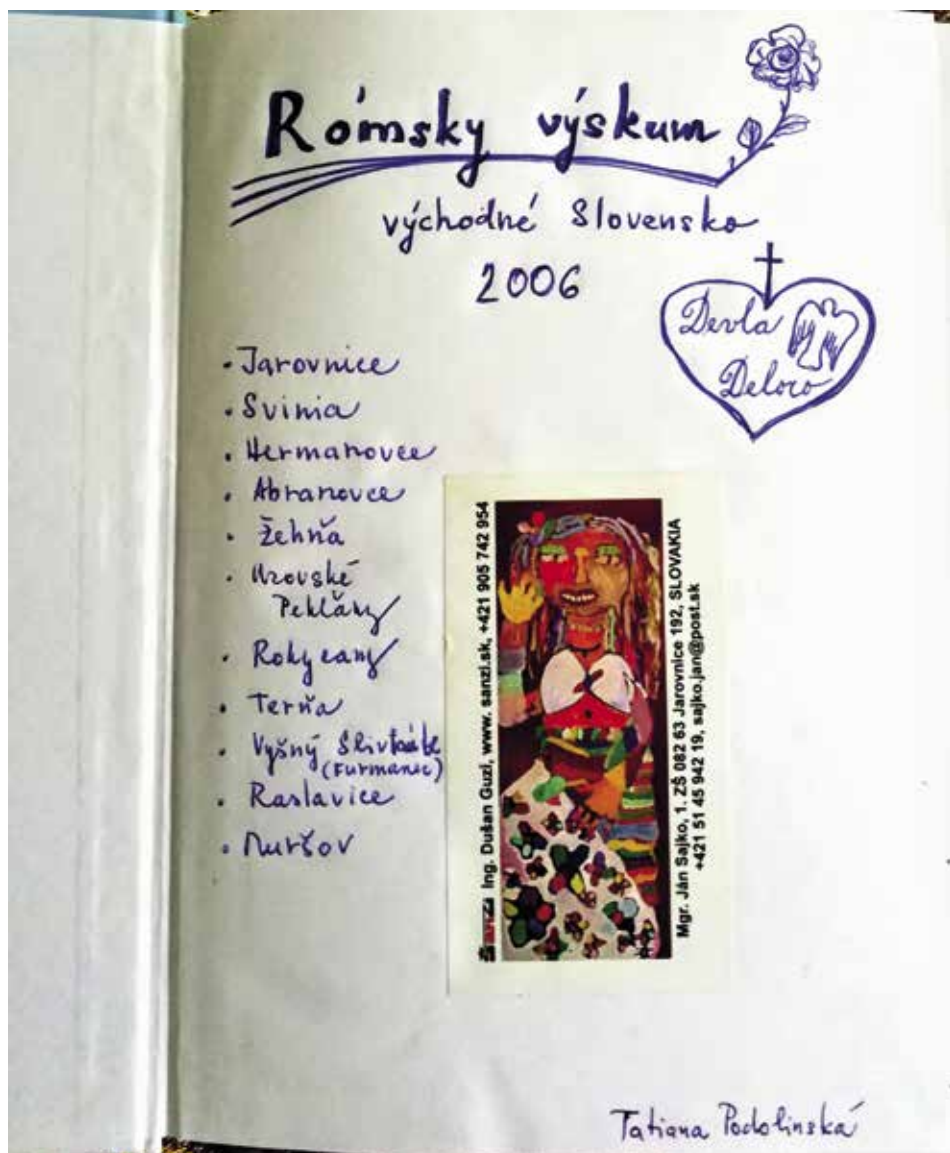 Rómsky výskum
východné Slovensko
2006
Devla
Deloro
• Jarovnice
• Svinia
• Hermanovce
• Abranovce
• Žehňa
• Uzovské
Pekľany
• Rokycany
• Terňa
• Vyšný
(Furmanec)
• Raslavice
• Muršov
Ing. Dušan Guzi, www. sanzi.sk, +421 905 742 954
Mgr. Ján Sajko, 1. ZŠ 082 63 Jarovnice 192, SLOVAKIA
+421 51 45 942 19, sajko.jan@post.sk
Tatiana Podolinská